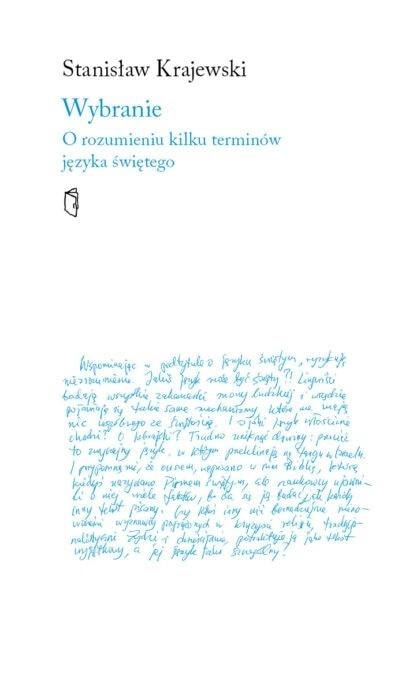 Stanisław Krajewski
Wybranie
O rozumieniu kilku terminów
języka świętego
Wspominając w podtytule o języku świętym, ryzykuję
niezrozumienie. Jakiś język może być święty?! Lingwiści
badają wszystkie zakamarki mowy ludzkiej i wszędzie
pojawiają się takie same mechanizmy, które nie mają
nic wspólnego ze świętością. I o jaki język właściwie
chodzi? O hebrajski? Trudno uniknąć drwiny: przecież
to zwyczajny język, w którym przeklinają na targu w Izraelu.
I przypomną mi, że owszem, napisano w nim Biblię, którą
kiedyś nazywano Pismem świętym, ale naukowcy ujawnili
o niej wiele faktów, bo da się ją badać jak każdy
inny tekst pisany. Czy ktoś inny niż
wyznawcy pogrążonych w kryzysie religii,
Żydzi i chrześcijanie, potraktuje ją jako tekst
wyjątkowy, a jej język jako szczególny?